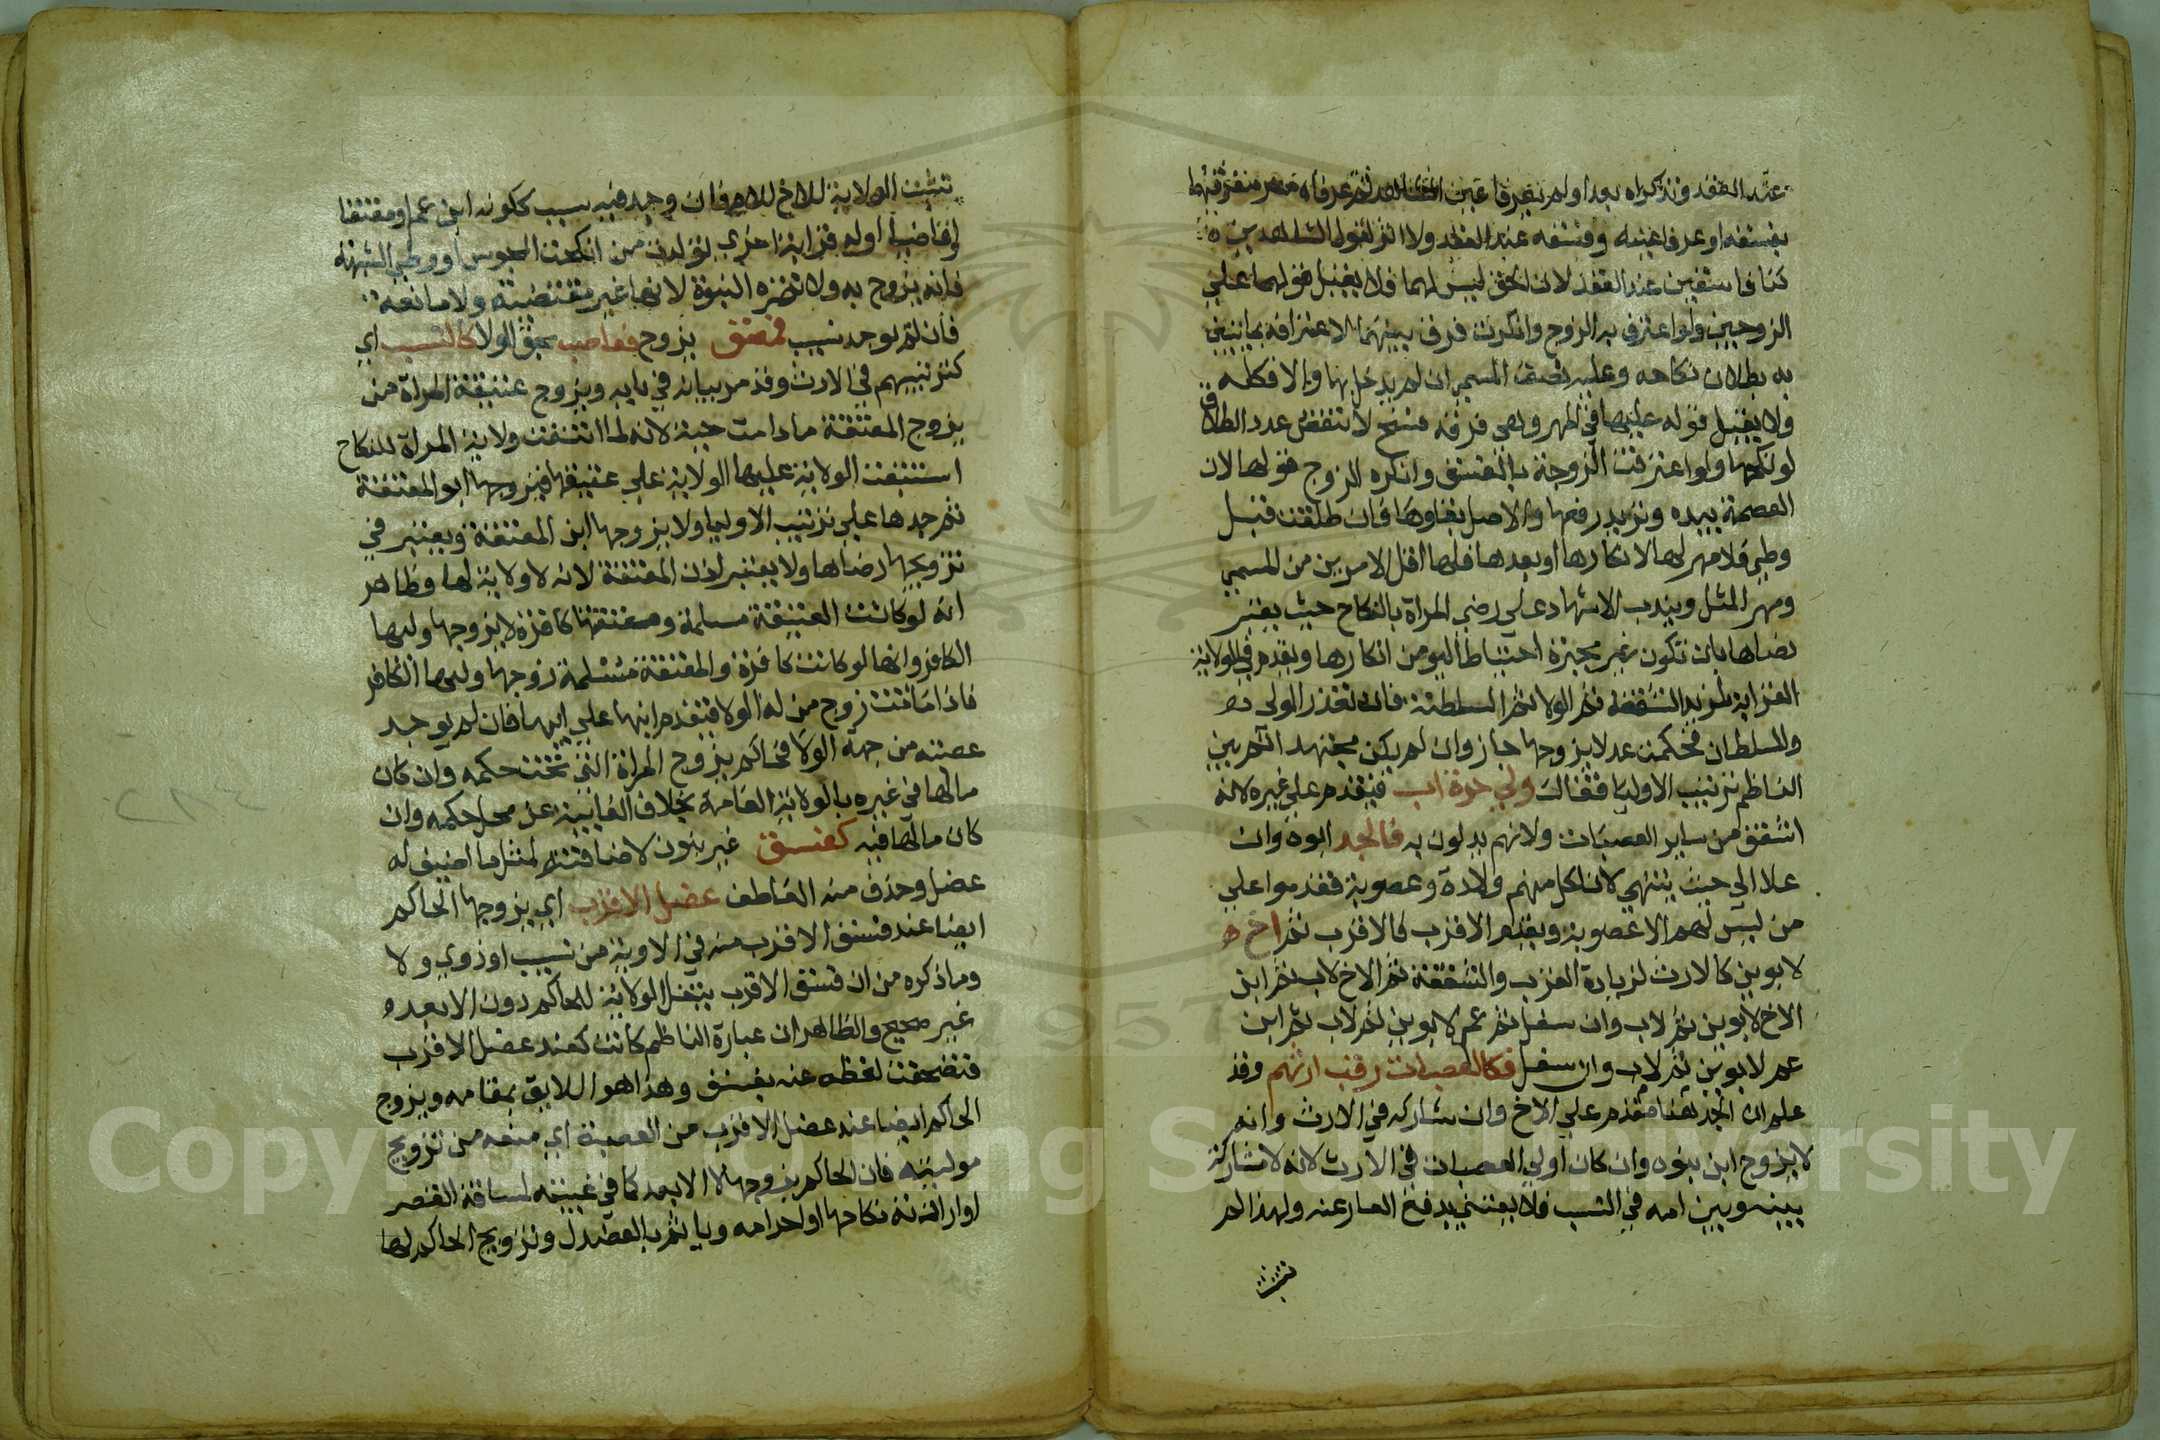 عند العقد وتذكراه بعد اولم يعرفا عين
بفسقه او عرفا عينه وفسقه عند العقد ولا اثر لقول الشاهدين
كنا فاسقين عند العقد لان الحق ليس لهما فلا يقبل قولهما علي
الزوجين ولو اعترف به الزوج وانكرت فرق بينهما لاعترافه بما يتبين
به بطلان نكاحه وعليه نصف المسمي ان لم يدخل بها والا فكله
ولا يقبل قوله عليها في المهر وهي فرقة فسخ لا تنقص عدد الطلاق
لو نكحها ولو اعترفت الزوجة بالفسق وانكره الزوج قولها لان
العصمة بيده وتريد رفعها والاصل بقاوها فان طلقت قبل
وطي فلا مهر لها لانكارها او بعدها فلها اقل الامرين من المسمي
ومهر المثل ويندب الاشهاد علي رضي المراة بالنكاح حيث يعتبر
رضاها بان تكون غير مجبرة احتياطا ليومن انكارها ويقدم في الولاية
القرابة لمزيد الشفقة ثم الولا ثم السلطنة فان تعذر الولى
والسلطان فحكمت عدلا يزوجها جاز وان لم يكن مجتهدا ثم بين
الناظم ترتيب الاوليا فقال ولي حرة اب فيقدم علي غيره لانه
اشفق من ساير العصبات ولانهم يدلون به فالجد ابوه وان
علا الي حيث ينتهي لان لكل منهم ولادة وعصوبة فقدموا علي
من ليس لهم الا عصوبة ويقدم الاقرب فالاقرب ثم اخ
لابوين كالارث لزيادة القرب والشفقة ثم الاخ لاب ثم ابن
الاخ لابوين ثم لاب وان سفل ثم عم لابوين ثم لاب ثم ابن
عم لابوين ثم لاب وان سفل فكالعصبات رتب ارثهم وقد
علم ان الجد هنا مقدم علي الاخ وان شاركه في الارث وانه
لا يزوج ابن ببنوه وان كان اولي العصبات في الارث لانه لا مشاركة
بينه وبين امه في النسب فلا يعتني بدفع العار عنه ولهذا لم
تثبت
تثبت الولاية للاخ للام فان وجد فيه سبب ككونه ابن عم او معتقا
او قاضيا اوله قرابة اخري تولدت من انكحة المجوس او وطي الشبهة
فانه يزوج به ولا تضره البنوة لانها غير مقتضية ولا مانعة
فان لم يوجد نسيب فمعتق يزوج فعاصب بحق الولا كالنسب اي
كترتيبهم في الارث وقد مر بيانه في بابه ويزوج عتيقة المراة من
يزوج المعتقة ما دامت حية لانه لما انتفت ولاية المراة للنكاح
استتبعت الولاية عليها الولاية علي عتيقها فيزوجها ابو المعتقة
ثم جدها علي ترتيب الاوليا ولا يزوجها ابن المعتقة ويعتبر في
تزويجها رضاها ولا يعتبر اذن المعتقة لانه لا ولاية لها وظاهر
انه لو كانت العتيقة مسلمة ومعتقتها كافرة لا يزوجها وليها
الكافر وانها لو كانت كافرة والمعتقة مسلمة زوجها وليها الكافر
فاذا ماتت زوج من له الولا فيقدم ابنها علي ابيها فان لم يوجد
عصبته من جهة الولا فحاكم يزوج المراة التي تحت حكمه وان كان
مالها في غيره بالولاية العامة بخلاف الغايبة عن محل حكمه وان
كان مالها فيه كفسق غير بنون لاضافته لمثل ما اضيف له
عضل وحذف منه العاطف عضل الاقرب اي يزوجها الحاكم
ايضا عند فسق الاقرب منه في الاوبة من نسيب او ذوي ولا
وما ذكره من ان فسق الاقرب ينقل الولاية للحاكم دون الابعد
غير صحيح والظاهر ان عبارة الناظم كانت كعند عضل الاقرب
فتصحفت لفظه عند بفسق وهذا هو اللايق بمقامه ويزوج
الحاكم ايضا عند عضل الاقرب من العصبة اي منعه من تزويج
موليته فان الحاكم يزوجها لا الابعد كما في غيبته لمسافة القصر
او ارادته نكاحها او احرامه وياثم بالعضل وتزويج الحاكم لها
٢٨٤
1957
Copyright © King Saud University